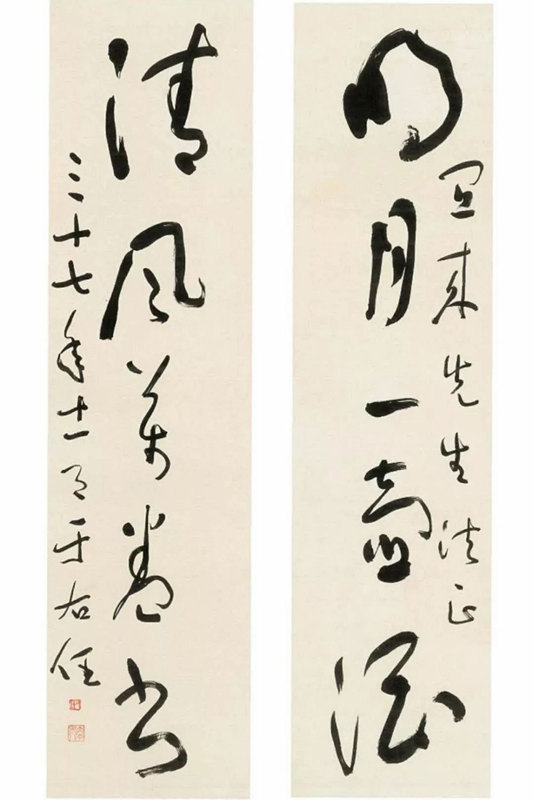 来先生法正
明月一壺酒
清風萬卷書
三十七年十一月于右任